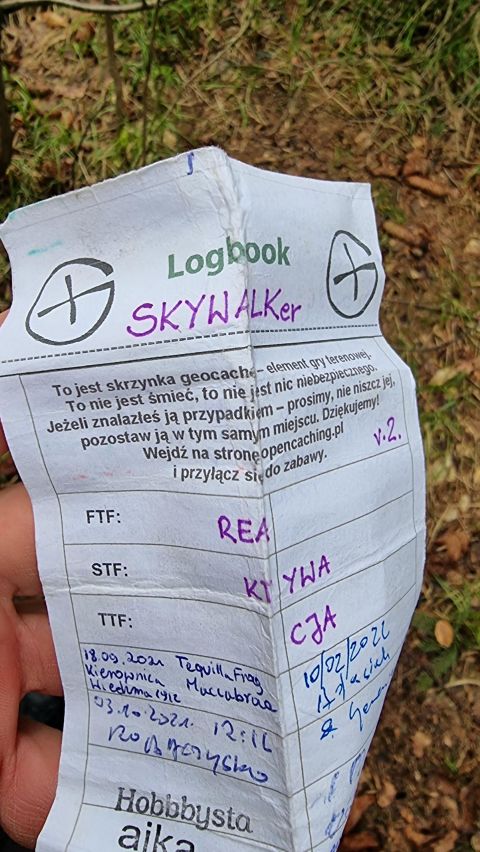 Logbook
SKYWALKer
To jest skrzynka geocache - element gry terenowej.
To nie jest śmieć, to nie jest nic niebezpiecznego.
Jeżeli znalazłeś ją przypadkiem – prosimy, nie niszcz jej,
pozostaw ją w tym samym miejscu. Dziękujemy!
Wejdź na stronę opencaching.pl
i przyłącz się do zabawy.
v.2.
FTF: REA
STF: KTYWA
TTF: CJA
18.09.2021 Tequilla Frog
Kierownica Maccabraa
Wiedzma
03.10.2021. 12:16
10/02/2022
Hobbbysta
ajka